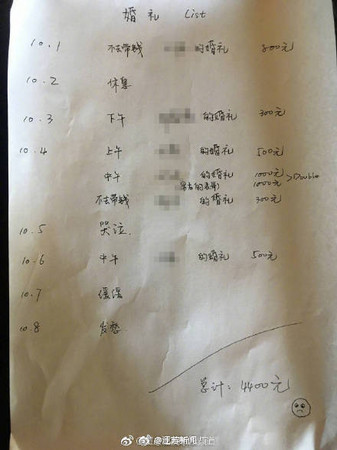 婚礼 List
10.1 不去带钱 的婚礼 800元
10.2 休息
10.3 下午 的婚礼 300元
10.4 上午 的婚礼 500元
中午 的婚礼 1000元
1000元 >Double
不去带钱 的婚礼 300元
10.5 哭泣
10.6 中午 的婚礼 500元
10.7 缓缓
10.8 发愁
总计：4400元